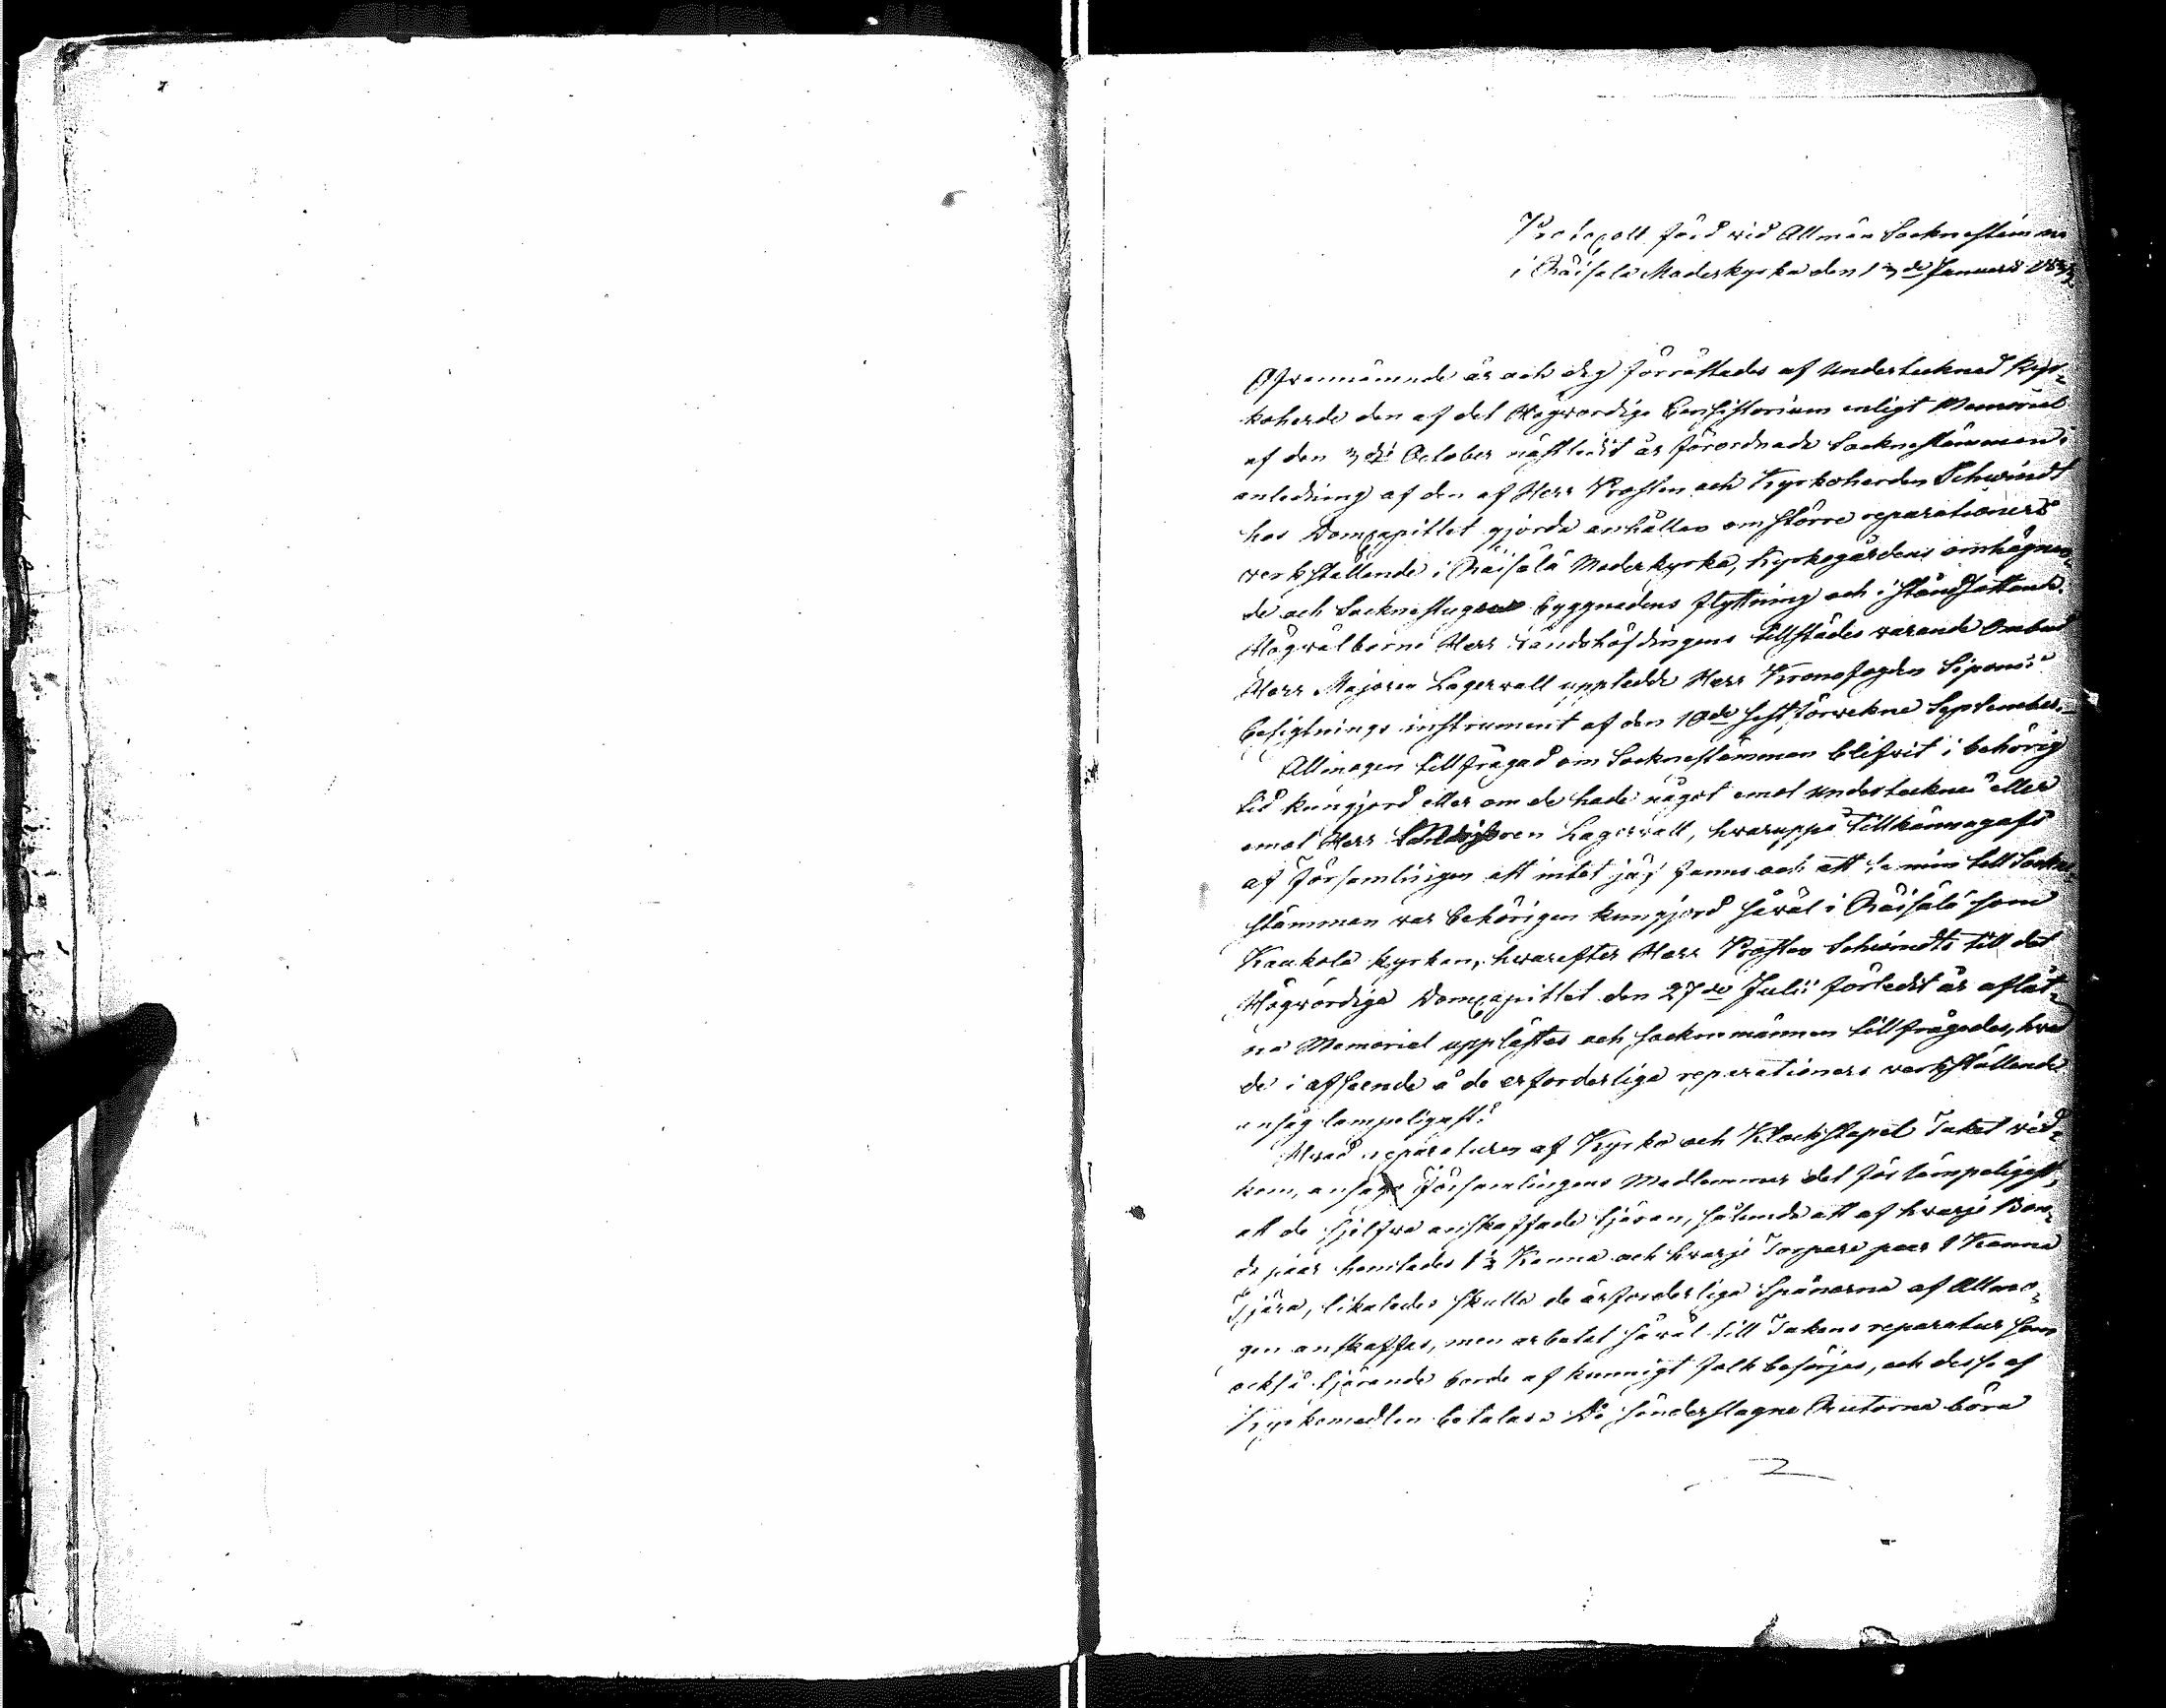 Protocoll förd wid Allmän Sockneställning
i Räisälä Moderkyrka den 13de Januarii 1833.
Ofwannämnde år och dag förrättades af undertecknad Kyr-
koherde den af det Högwördiga Consistorium enligt Memorial
af den 3die October nästledit år förordnade Socknestämman i
anledning af den af Herr Prosten och Kyrkoherden Schwindt
hos Domcapitlet gjorda anhållan om större reparationers
verkställande i Räisälä Moderkyrka, Kyrkogårdens omhägnan-
de och Socknestugu byggnadens flyttning och i ståndsättande.
Högwälborne Herr Landshöfdingens tillstädes warande Ombud
Herr Majoren Lagerwall uppledde Herr Kronofogden Siponii
besigtnings instrument af den 10de sistförwekne September.
Allmogen tillfrågad om Socknestämman blifwit i behörig
tid kungjord eller om de hade något emot undertecknad eller
emot Herr Majoren Lagerwall, hwaruppå tillkännagafs
af Församlingen att intet jäf fanns och att termin till Sockne-
stämman war behörigen kungjord såwäl i Räisälä som
Kaukola kyrkan, hwarefter Herr Prosten Schwindts till det
Högwördiga Domcapitlet den 27de Julii förledit år aflåt-
na Memorial upplästes och sockenmännen tillfrågades, hwad
de i afseende å de erforderliga reparationers werkställande
ansåg lämpeligast?
Hwad reparaturen af Kyrko och Klockstapel Taket wid-
kom, ansågo Församlingens Medlemmar det för lämpeligast,
att de sjelfwa anskaffade tjäran, sålunda att af hwarje Bon-
de paar hemtades 1½ Kanna och hwarje Torpare paar 1 Kanna
Tjära, likaledes skulle de ärforderliga Spånorna af Allmo-
gen anskaffas, men arbetet såwäl till Takens reparatur som
också tjärande borde af kunnigt folk besörjas, och desse af
Kyrkomedlen betalas. De sönderslagne Rutorna böra
2